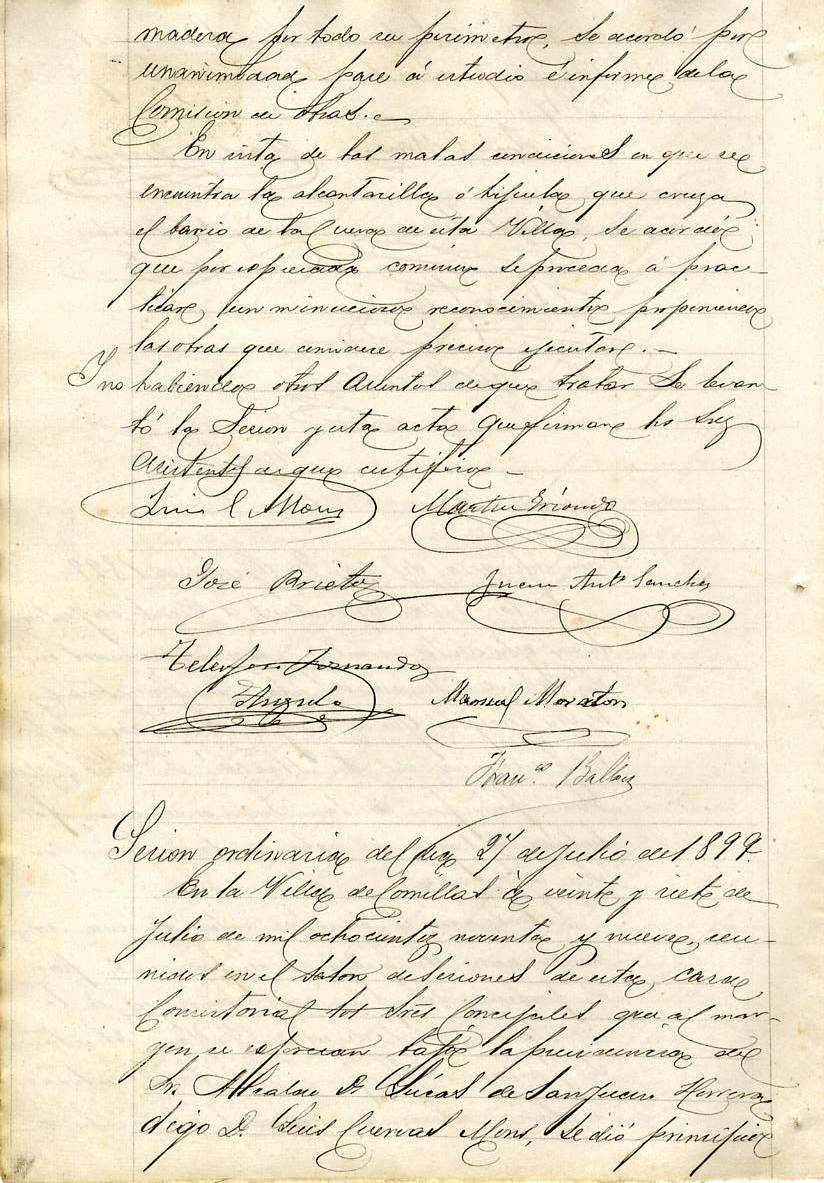 madera por todo su perimetro, se acordó por
unanimidad pase á estudio é informe de la
Comision de Obras.
En vista de las malas condiciones en que se
encuentra la alcantarilla ó tijuela que cruza
el bario de la Cueva de esta Villa, se acordó
que por espresada comision se proceda á prac-
ticar un minucioso reconocimiento proponiendo
las obras que considere preciso ejecutar.
Y no habiendo otros asuntos de que tratar se levan-
tó la Sesion y esta acta que firman los Sres
asistentes de que certifico
Luis C Mons Martin
José Prieto Juan Antº Sanchez
Telesforo Fernandez
Manuel Moraton
Franco
Sesion ordinaria del dia 27 de Julio de 1899.
En la Villa de Comillas á veinte y siete de
Julio de mil ochocientos noventa y nueve, reu-
nidos en el salon de sesiones de esta casa
Consistorial los Sres Concejales que al mar-
gen se espresan bajo la presidencia del
Sr. Alcalde D. Lucas de San Juan Herrera
digo D. Luis Cuervas Mons, se dió principio